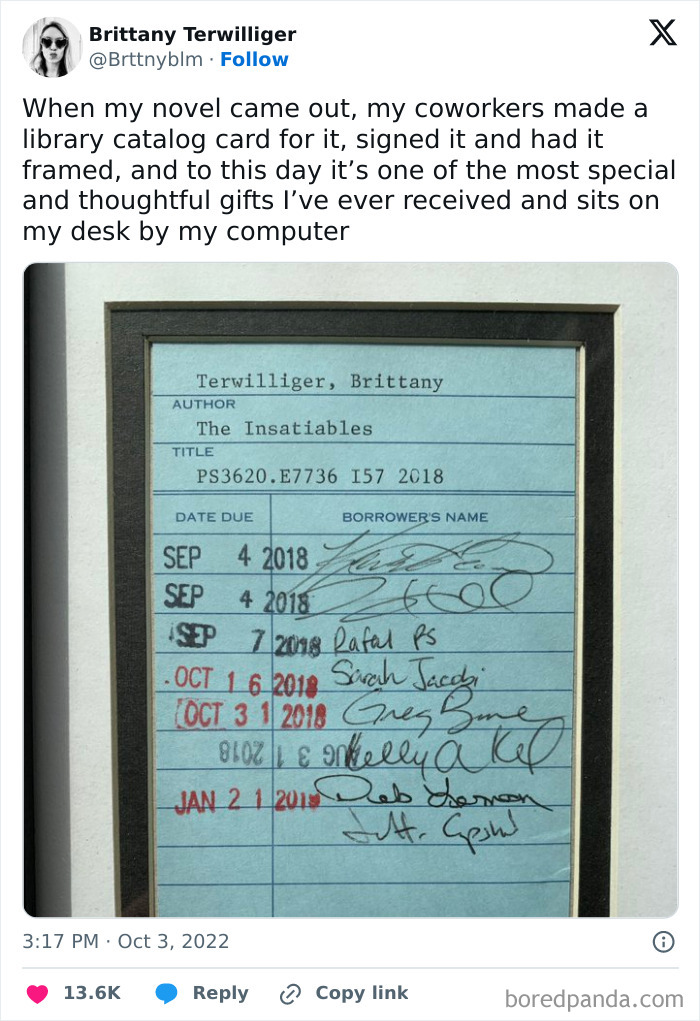 Brittany Terwilliger
@Brttnyblm · Follow
When my novel came out, my coworkers made a
library catalog card for it, signed it and had it
framed, and to this day it’s one of the most special
and thoughtful gifts I’ve ever received and sits on
my desk by my computer
Terwilliger, Brittany
AUTHOR
The Insatiables
TITLE
PS3620.E7736 I57 2018
DATE DUE BORROWER'S NAME
SEP 4 2018
SEP 4 2018
SEP 7 2018 Rafal Ps
OCT 16 2018 Sarah Jacobi
OCT 31 2018 Greg
AUG 31 2018 Kelly A
JAN 21 2019 Deb
3:17 PM · Oct 3, 2022
13.6K Reply Copy link
boredpanda.com